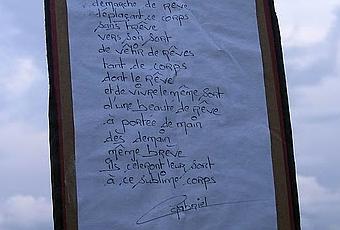 démarche de RÊVE
déplaçant ce CORPS
sans trêve
vers son sort
de vêtir de RÊVES
tant de CORPS
dont le RÊVE
et de vivre le même sort
d'une beauté de RÊVE
à portée de main
dès demain
même brève
ils cèleront leur sort
à ce sublime corps
Gabriel